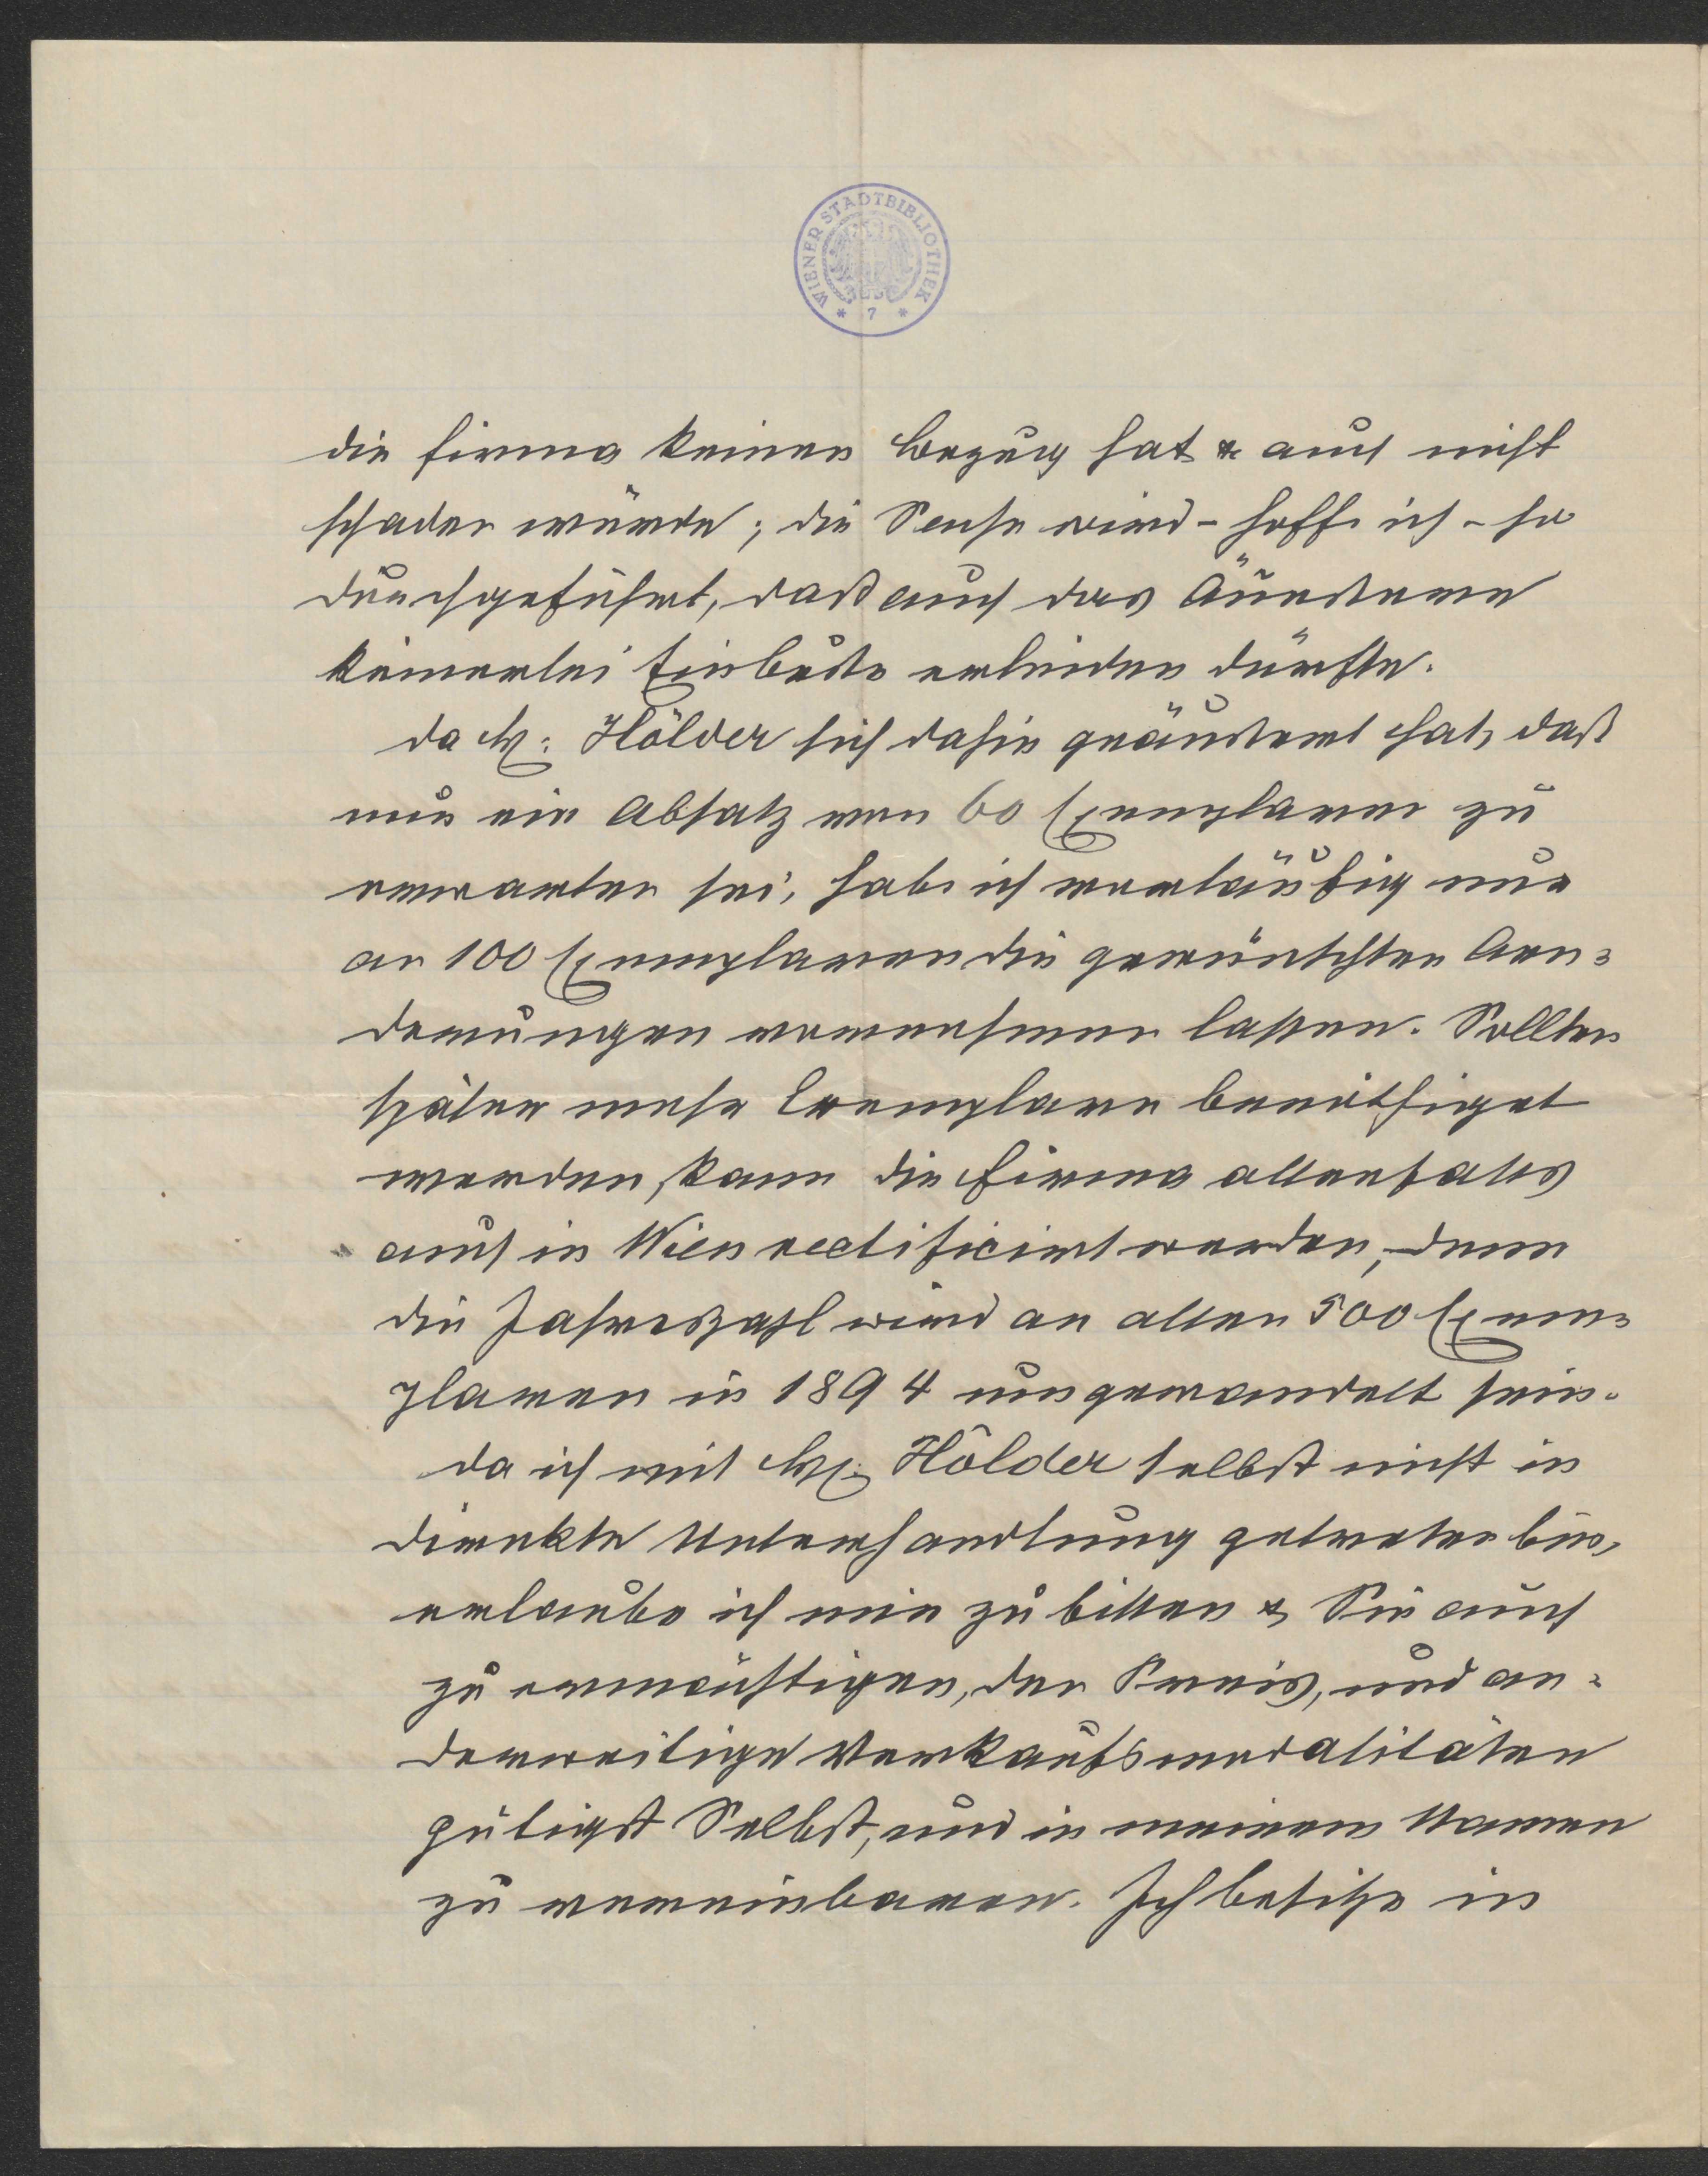 WIENER STADTBIBLIOTHEK
* 7 *
die Firma keinen Bezug hat & auch nicht
schaden würde; die Sache wird – hoffe ich – so
durchgeführt, daß auch das Äußere
keinerlei Einbuße erleiden dürfte.
Da H: Hölder sich dahin geäußert hat, daß
nur ein Absatz von 60 Exemplaren zu
erwarten sei, habe ich vorläufig nur
an 100 Exemplaren die gewünschten Aen=
derungen vornehmen lassen. Sollten
später mehr Exemplare benöthiget
werden, kann die Firma allenfalls
auch in Wien rectificirt werden, denn
die Jahreszahl wird an allen 500 Exem=
plaren in 1894 umgewandelt sein.
Da ich mit H: Hölder selbst nicht in
direkte Unterhandlung getreten bin,
erlaube ich mir zu bitten & Sie auch
zu ermächtigen, den Preis, und an=
derweitige Verkaufsmodalitäten
gütigst Selbst, und in meinem Namen
zu vereinbaren. Ich besitze in